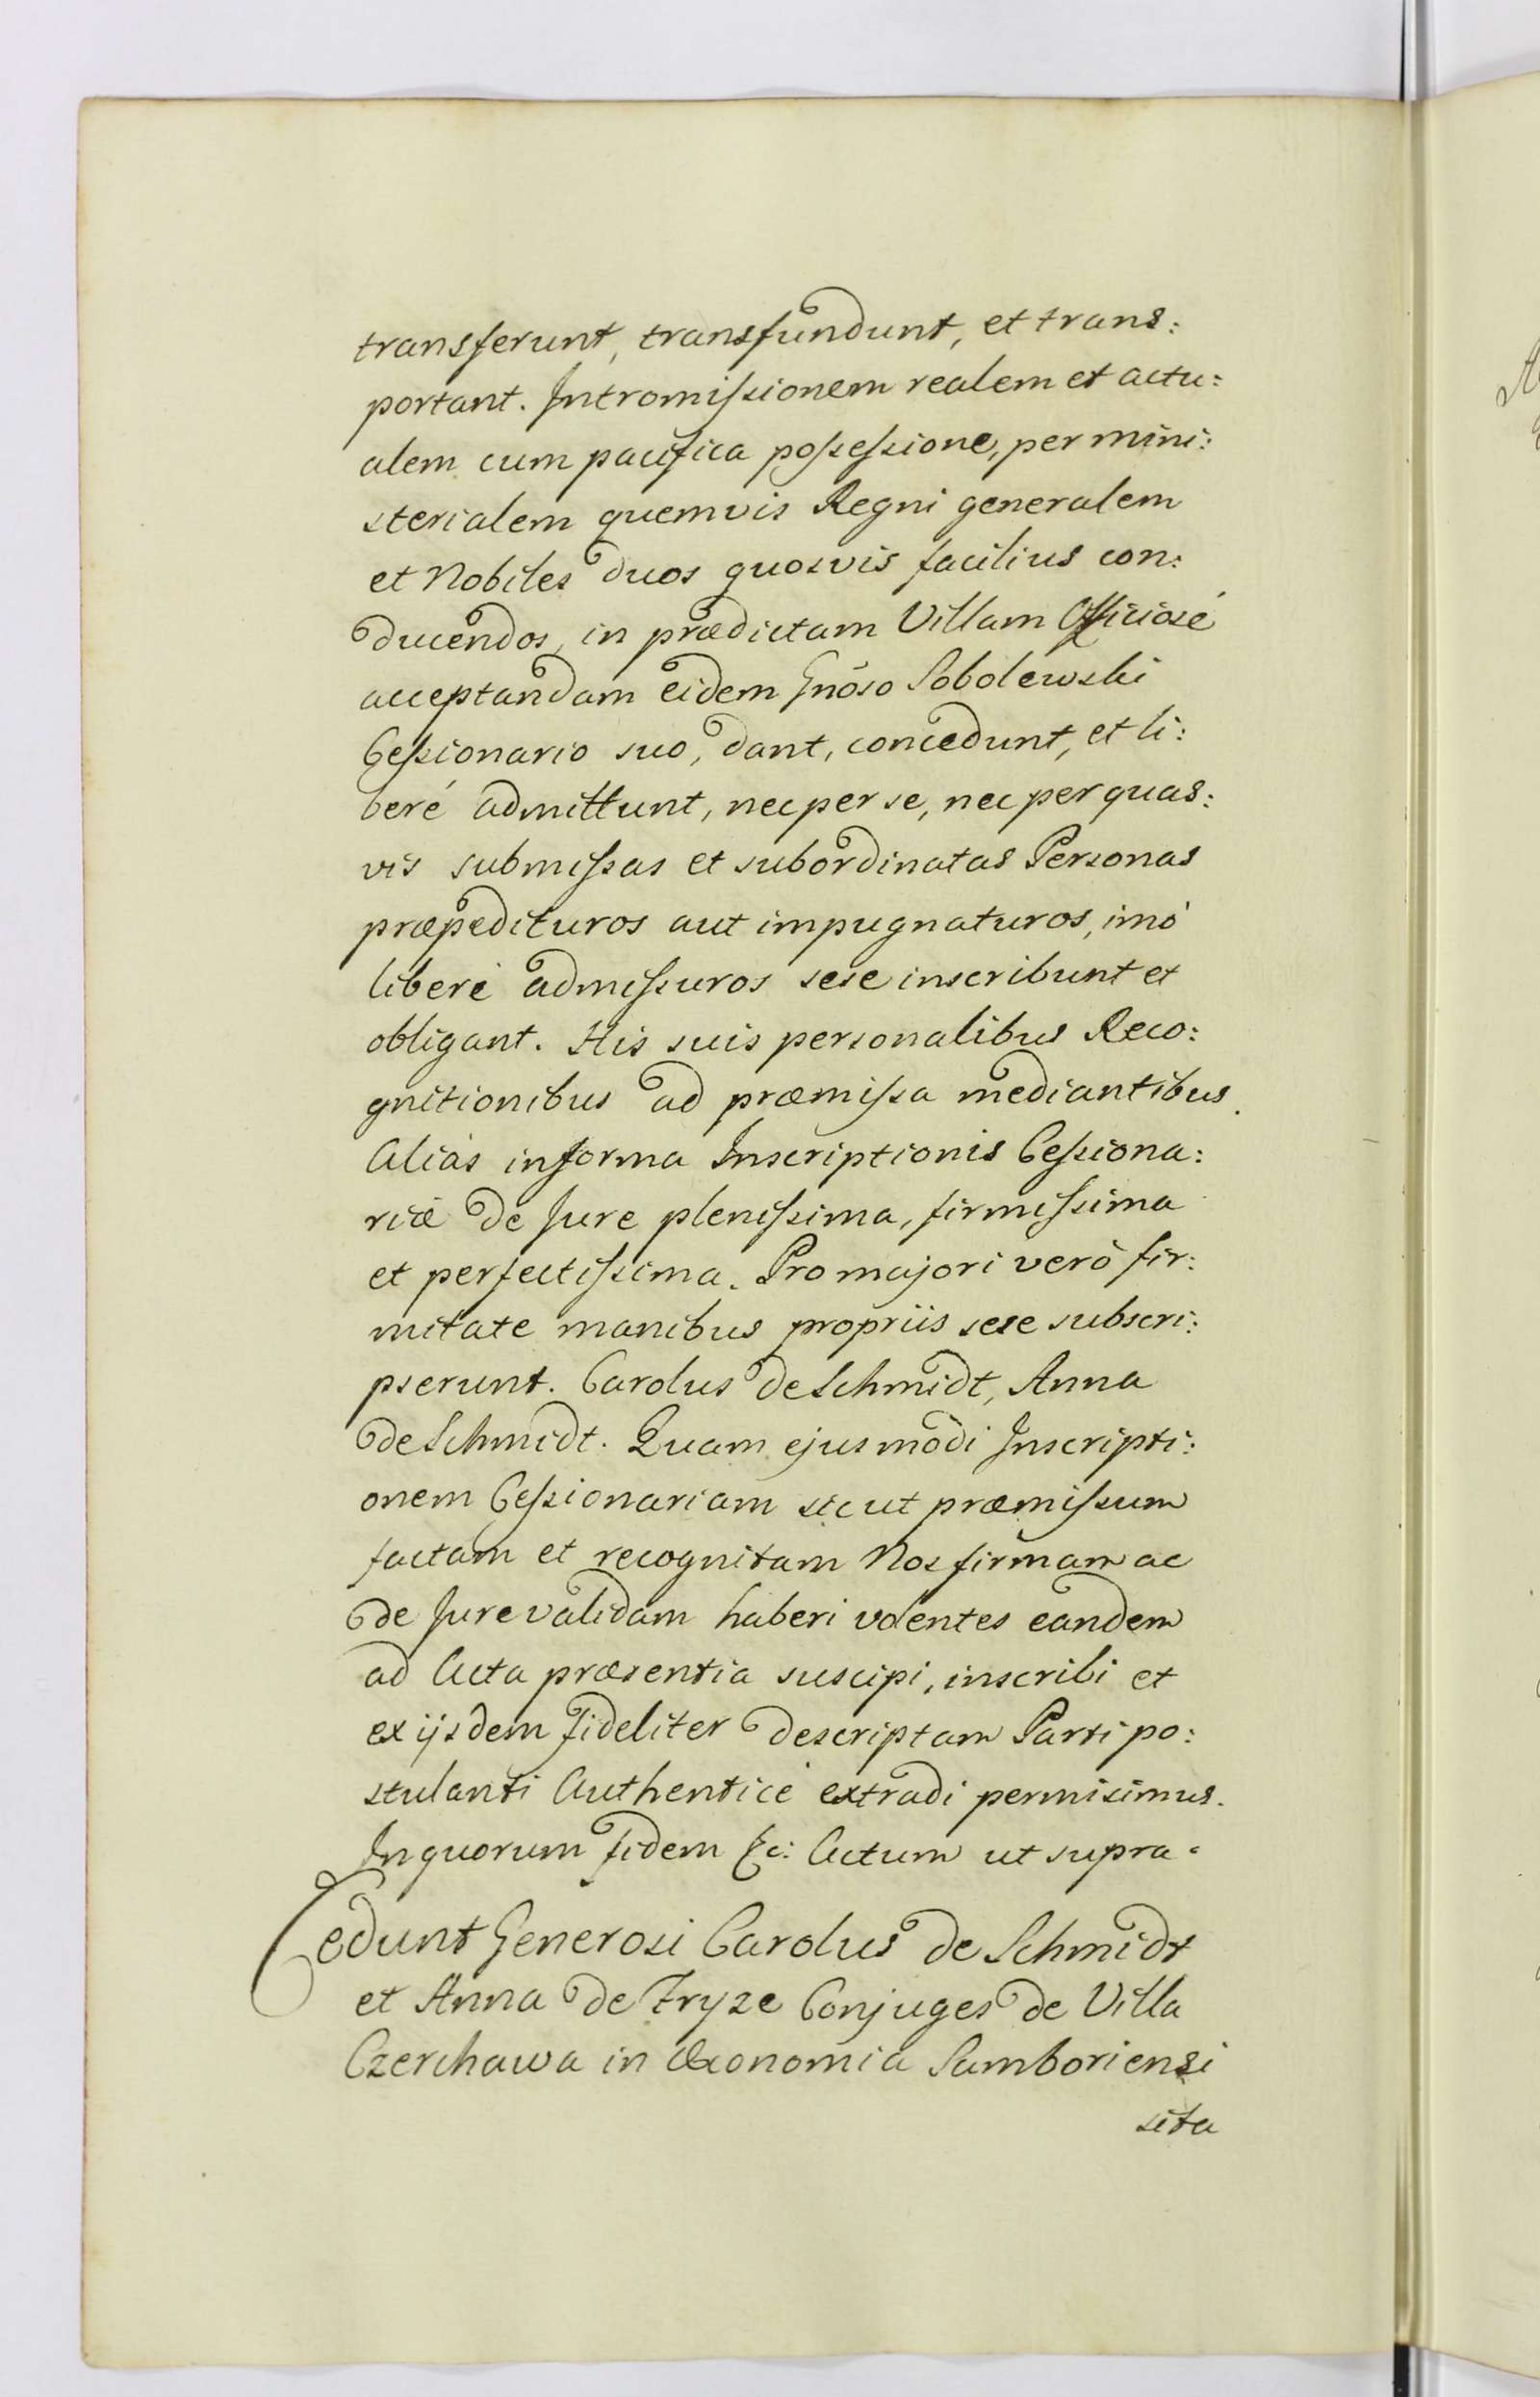 transferunt, transfundunt, et trans:
portant. Intromiſsionem realem et actu:
alem cum pacifica poſseſsione, per mini:
sterialem quemvis Regni generalem
et Nobiles duos quosvis facilius con:
ducendos, in prædictam Villam Officiosé
acceptandam eidem Gnōso Sobolewski
Ceſsionario suo, dant, concedunt, et li:
beré admittunt, nec per se, nec per quas:
vis submiſsas et subordinatas Personas
præpedituros aut impugnaturos, imò
liberé admiſsuros sese inscribunt et
obligant. His suis personalibus Reco:
gnitionibus ad præmiſsa mediantibus.
Aliàs in forma Inscriptionis Ceſsiona:
riæ de Jure pleniſsima, firmiſsima
et perfectiſsima. Pro majori verò fir:
mitate manibus propriis sese subscri:
pserunt. Carolus de Schmidt, Anna
de Schmidt. Quam ejusmodi Inscripti:
onem Ceſsionariam sicut præmiſsum
factam et recognitam Nos firmam ac
de Jure validam haberi volentes eandem
ad Acta præsentia suscipi, inscribi et
ex ijsdem fideliter descriptam Parti po:
stulanti Authenticé extradi permisimus.
In quorum fidem &c: Actum ut supra.
Cedunt Generosi Carolus de Schmidt
et Anna de Fryze Conjuges de Villa
Czerchawa in Œconomia Samboriensi
sita